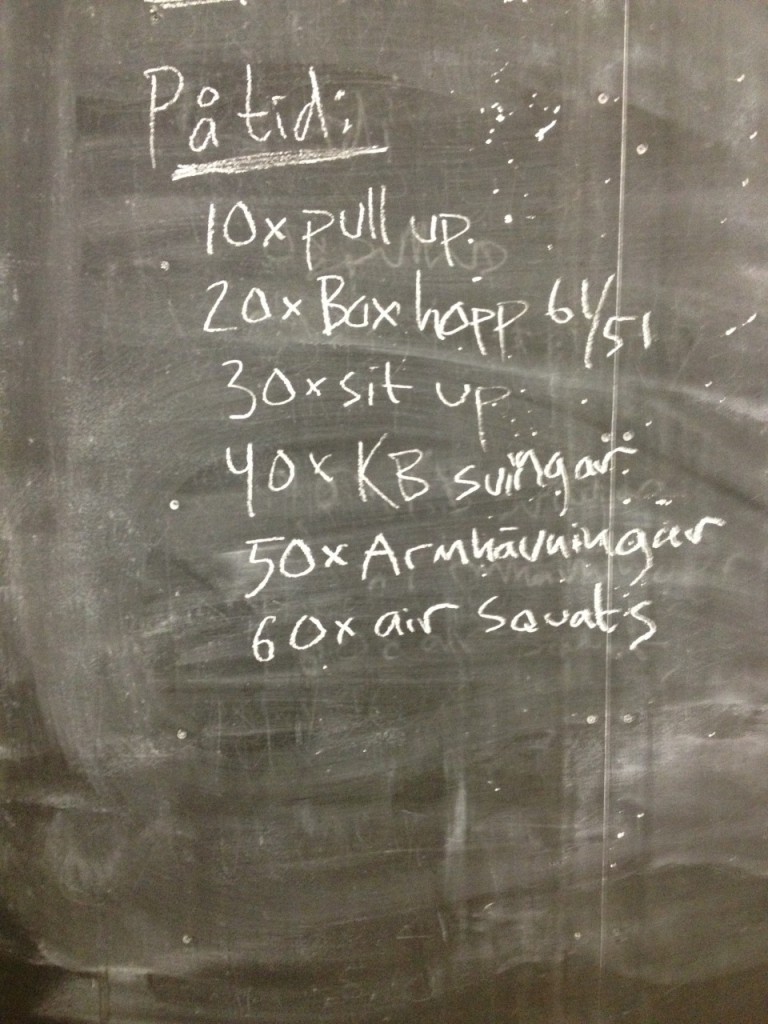 På tid:
10x pull up
20x Box hopp 61/51
30x sit up
40x KB svingar
50x Armhävningar
60x air squats